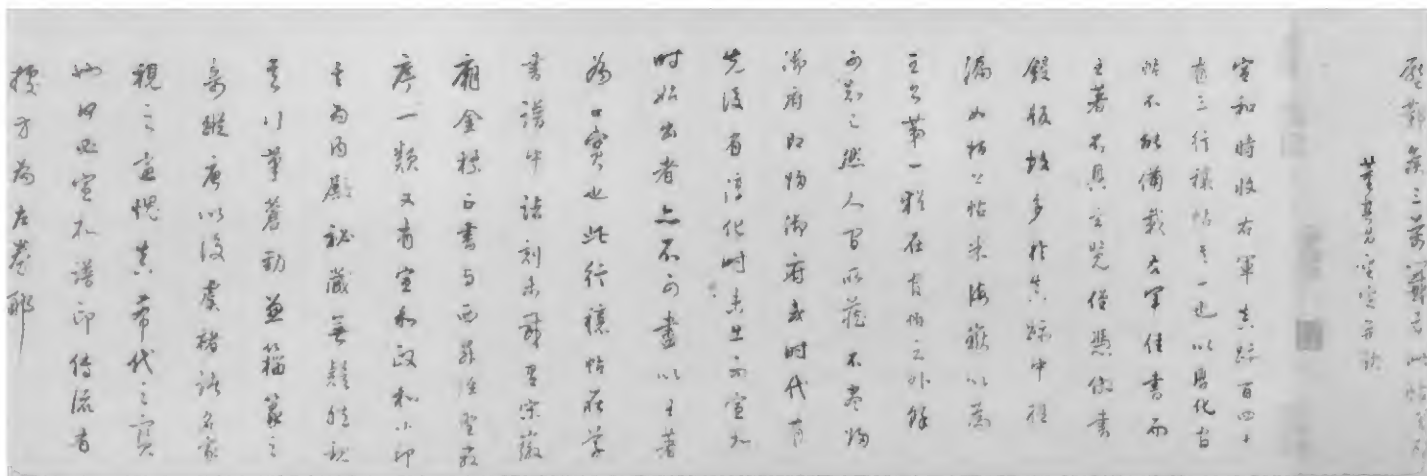 鄴矦三萬籤者此帖
董其昌審定并識
宣和時收右軍真跡百四十
有三行穰帖其一也以淳化官
帖不能備載右軍佳書而
王著不具玄覽僅憑倣書
鋟版故多於真跡中
漏如桓公帖米海嶽以為
王書第一猶在官帖之外餘
可知已然人間所藏不盡歸
御府即歸御府或時代有
先後有淳化時未出而宣和
時始出者亦不可盡以王著
為口實也此行穰帖在
書譜宋徽
廟金標正書與西昇經聖教
序一類又有宣和政和小印
其為內殿祕藏無疑觀
其行筆蒼勁兼籀篆之
奇蹤唐以後虞褚諸名家
視之當愧真希代之寶
宣和譜印傳流有
據方為左券耶